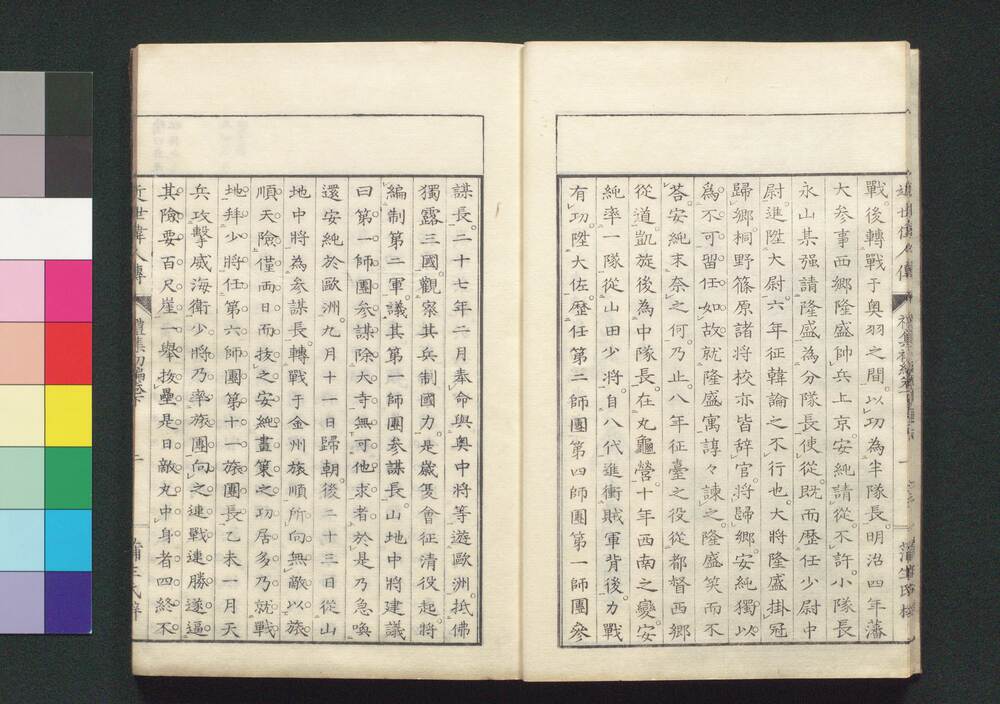 戰。後轉戰于奥羽之間。以功為半隊長。明治四年藩
大参事西郷隆盛帥兵上京。安純請從。不許。小隊長
永山某强請隆盛為分隊長使從。既而歴任少尉中
尉進陞大尉。六年征韓論之不行也。大將隆盛掛冠
歸郷。桐野篠原諸將校亦皆辭官將歸郷。安純獨以
為不可留任如故。就隆盛寓諄々諫之。隆盛笑而不
荅。安純末奈之何。乃止。八年征臺之役從都督西郷
從道。凱旋後為中隊長。在丸龜營。十年西南之變。安
純率一隊從山田少將。自八代進衝賊軍背後。力戰
有功陞大佐。歴任第二師團第四師團第一師團參
謀長。二十七年二月奉命與奥中將等遊歐洲。抵佛
獨露三國。觀察其兵制國力。是歳冬會征清役起。將
編制第二軍議其第一師團参謀長。山地中將建議
曰。第一師團参謀除大寺無可他求者。於是乃急喚
還安純於歐洲。九月十一日歸朝。後二十三日從山
地中將為参謀長。轉戰于金州旅順。所向無敵。以旅
順天險僅兩日而拔之。安純畫策之功居多。乃就戰
地拜少將任第六師團第十一旅團長。乙未一月天
兵攻撃威海衛。少將乃率旅團向之。連戰連勝。遂逼
其險要百尺崖。一擧拔壘。是日敵丸中身者四。終不
近世偉人傳 禮集初編卷下 二 蒲生氏梓